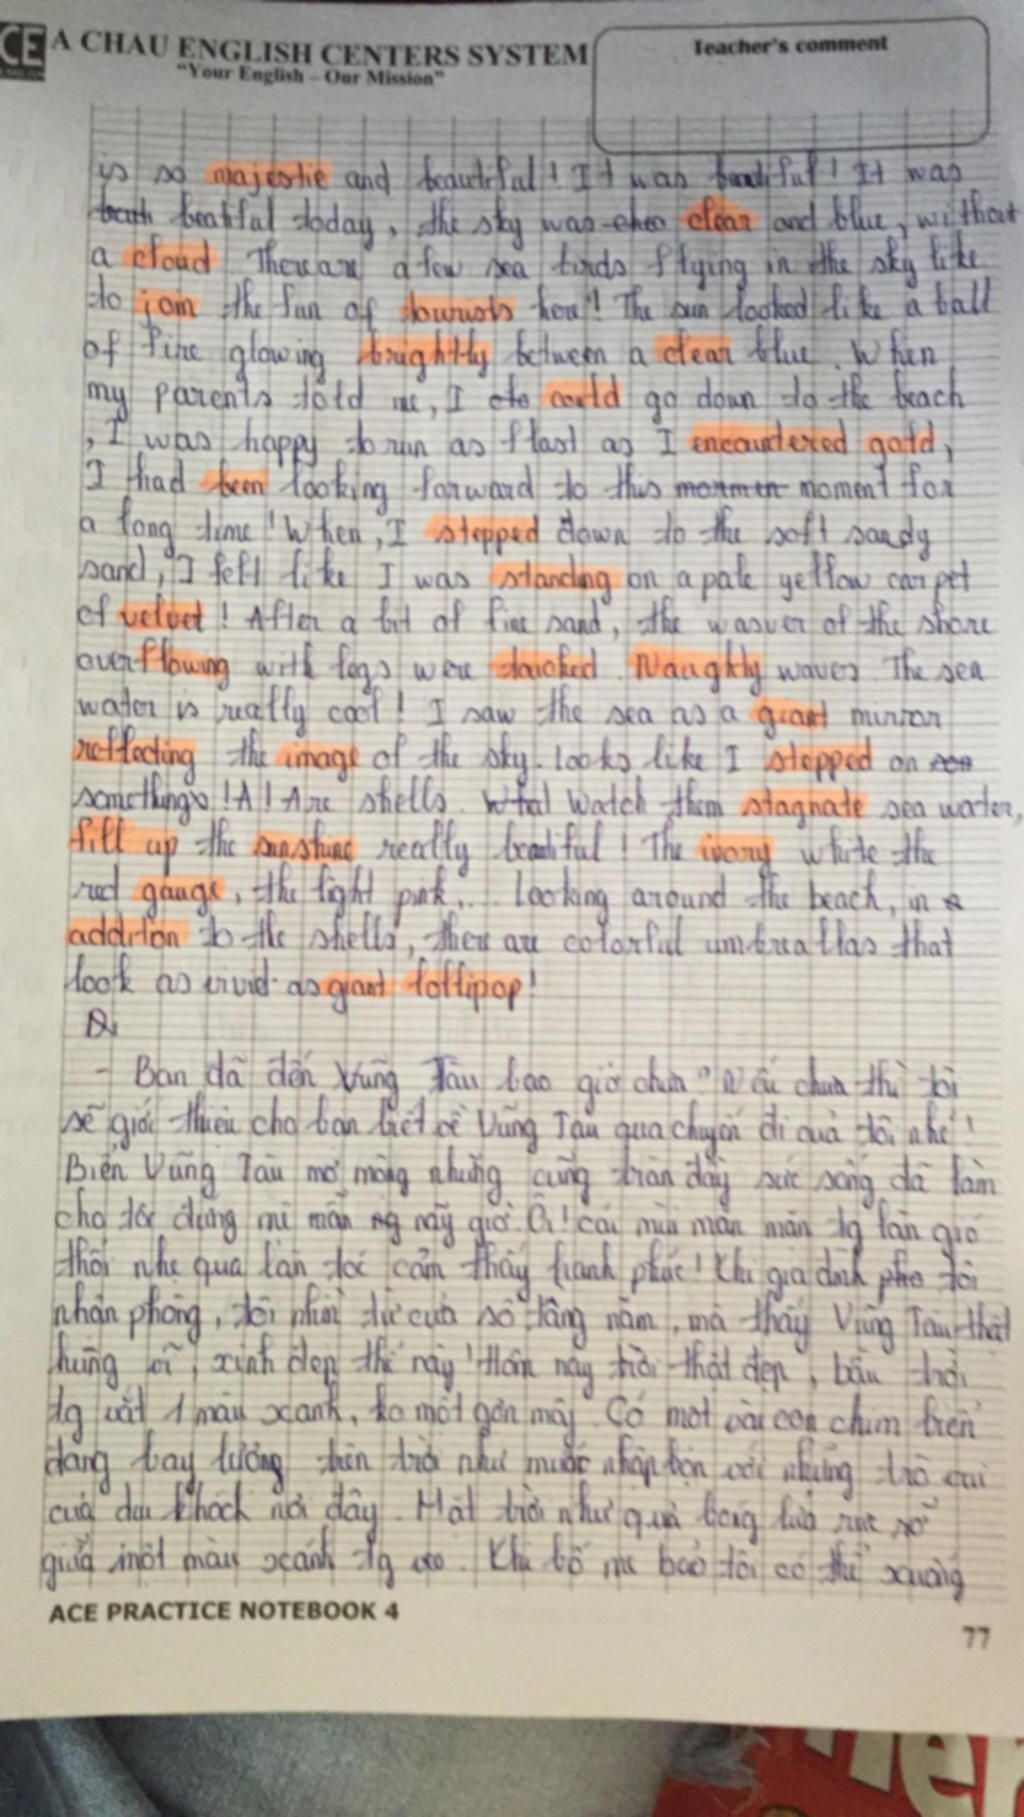 CE A CHAU ENGLISH CENTERS SYSTEM
"Your English – Our Mission"
Teacher's comment
is so majestic and beautiful! It was beautiful! It was
beatiful today, the sky was clear and blue, without
a cloud There are a few sea birds flying in the sky like
to join the fun of tourists here! The sun looked like a ball
of fire glowing brightly between a clear blue. When
my parents told me, I could go down to the beach
, I was happy to run as flast as I encountered gold,
I had been looking forward to this moment for
a long time! When, I stepped down to the soft sandy
sand, I felt like I was standing on a pale yellow carpet
of velvet! After a bit of fine sand, the of the shore
overflowing with legs were Naughty waves The sea
water is really cool! I saw the sea as a giant mirror
reflecting the image of the sky. Looks like I stepped on
somethings! A! Are shells. watch them stagnate sea water,
fill up the sunshine really beautiful! The ivory white the
red gauge, the light pink,... Looking around the beach, in
addition to the shells, there are colorful umbreallas that
look as vivid as giant lollipop!
- Bạn đã đến Vũng Tàu bao giờ chưa? Nếu chưa thì tôi
sẽ giới thiệu cho bạn biết về Vũng Tàu qua chuyến đi của tôi nhé!
Biển Vũng Tàu mơ mộng nhưng cũng tràn đầy sức sống đã làm
cho tôi đứng mê mẩn mấy giờ. Ôi! cái mùi mằn mặn tg làn gió
thổi nhẹ qua làn tóc cảm thấy hạnh phúc! Khi gia đình tôi
nhận phòng, tôi nhìn từ cửa sổ tầng năm, mà thấy Vũng Tàu thật
hùng vĩ, xinh đẹp thế này! Hôm nay trời thật đẹp, bầu trời
tg vắt 1 màu xanh, ko một gợn mây. Có một vài con chim biển
đang bay lượng trên trời như muốn nhập bọn với những trò vui
của du khách nơi đây. Mặt trời như quả bóng lửa rực rỡ
giữa một màu xanh tg Khi bố mẹ bảo tôi có thể xuống
ACE PRACTICE NOTEBOOK 4
77